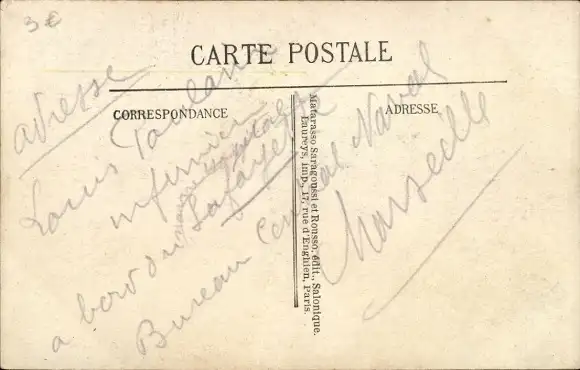 3€
CARTE POSTALE
CORRESPONDANCE
ADRESSE
Matarasso Saragoussi et Rousso, édit., Salonique.
Laureys, imp., 17, rue d'Enghien, Paris.
adresse
Louis
infirmier
a bord du Lafayette
Bureau Central Naval
Marseille